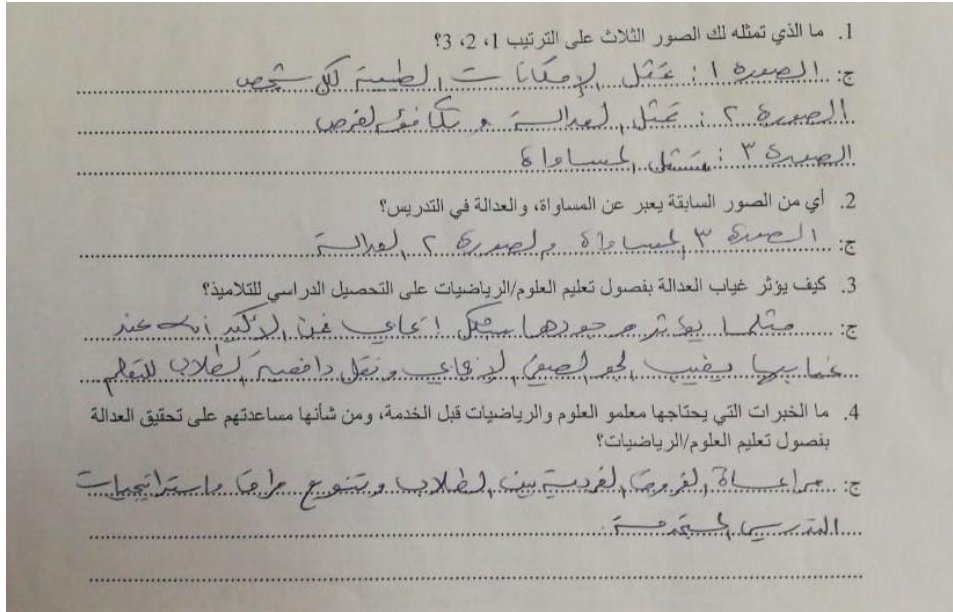 1. ما الذي تمثله لك الصور الثلاث على الترتيب 1، 2، 3؟
ج: الصورة ١ : تمثل الإمكانات الطبيعية لكل شخص
الصورة ٢ : تمثل العدالة و تكافؤ الفرص
الصورة ٣ : تمثل المساواة
2. أي من الصور السابقة يعبر عن المساواة، والعدالة في التدريس؟
ج: الصورة ٣ المساواة والصورة ٢ العدالة
3. كيف يؤثر غياب العدالة بفصول تعليم العلوم/الرياضيات على التحصيل الدراسي للتلاميذ؟
ج: مثلما يؤثر وجودها بشكل إيجابي فمن الأكيد أنه عند
غيابها يغيب الجو الصفي الإيجابي وتقل دافعية الطلاب للتعلم
4. ما الخبرات التي يحتاجها معلمو العلوم والرياضيات قبل الخدمة، ومن شأنها مساعدتهم على تحقيق العدالة
بفصول تعليم العلوم/الرياضيات؟
ج: مراعاة الفروق الفردية بين الطلاب وتنويع طرق واستراتيجيات
التدريس المستخدمة